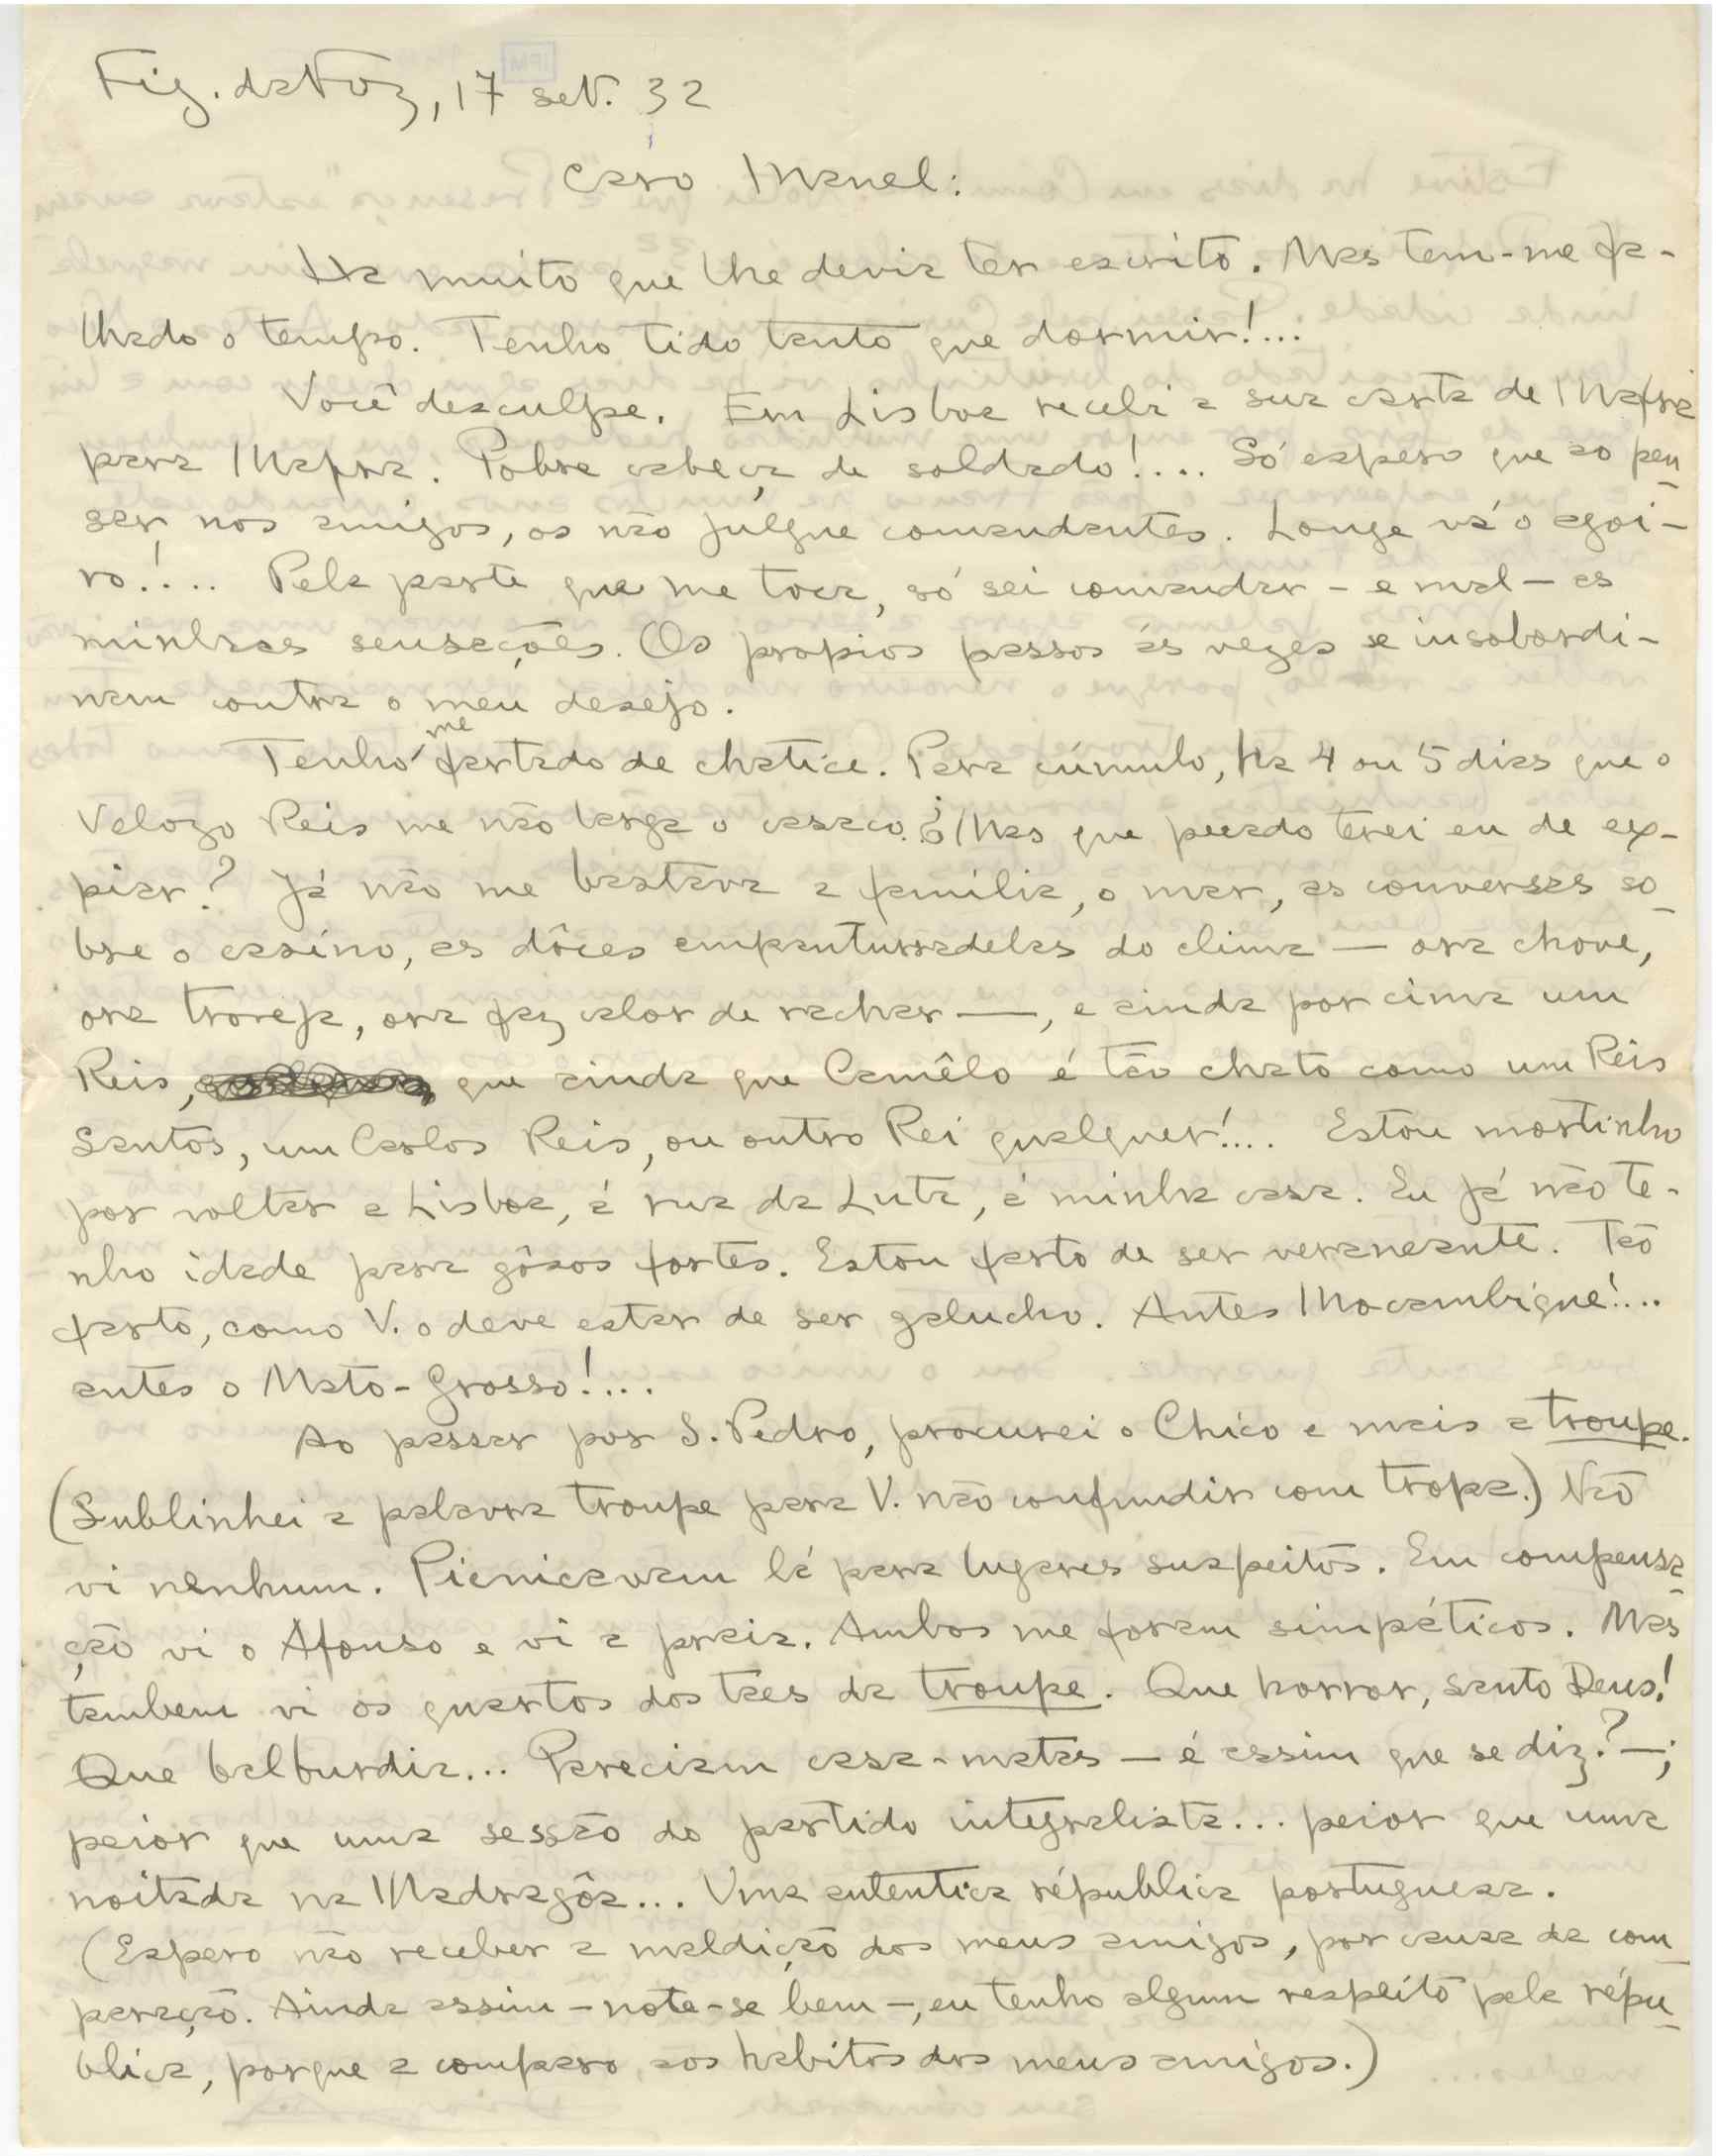 Fig. da Foz, 17 set. 32
Caro Manel:
Ha muito que lhe devia ter escrito. Mas tem-me fa-
lhado o tempo. Tenho tido tanto que dormir!...
Você desculpe. Em Lisboa recebi a sua carta de Mafra
para Mafra. Pobre cabeça de soldado!... Só espero que ao pen-
sar nos amigos, os não julgue comandantes. Longe vá o agoi-
ro!... Pela parte que me toca, só sei comandar - e mal - as
minhas sensações. Os propios passos ás vezes se insobordi-
nam contra o meu desejo.
Tenho me fartado de chatice. Para cúmulo, ha 4 ou 5 dias que o
Velozo Reis me não larga o casaco. ¿Mas que pecado terei eu de ex-
piar? Já não me bastava a família, o mar, as conversas so-
bre o casino, as dôces empanturradelas do clima — ora chove,
ora troveja, ora faz calor de rachar —, e ainda por cima um
Reis, que ainda que Camêlo é tão chato como um Reis
Santos, um Carlos Reis, ou outro Rei qualquer!... Estou mortinho
por voltar a Lisboa, á rua da Luta, á minha casa. Eu já não te-
nho idade para gôsos fortes. Estou farto de ser veraneante. Tão
farto, como V. o deve estar de ser galucho. Antes Mocambique!...
antes o Mato-Grosso!...
Ao passar por S. Pedro, procurei o Chico e mais a troupe.
(Sublinhei a palavra troupe para V. não confundir com tropa.) Não
vi nenhum. Picnicavam lá para lugares suspeitos. Em compensa-
ção vi o Afonso e vi a praia. Ambos me foram simpáticos. Mas
tambem vi os quartos dos taes da troupe. Que horror, santo Deus!
Que balburdia... Pareciam casa-matas — é assim que se diz? —;
peior que uma sessão do partido integralista... peior que uma
noitada na Madragôa... Uma autentica républica portuguesa.
(Espero não receber a maldição dos meus amigos, por causa da com-
paração. Ainda assim - note-se bem -, eu tenho algum respeito pela répu-
blica, porque a comparo aos habitos dos meus amigos.)